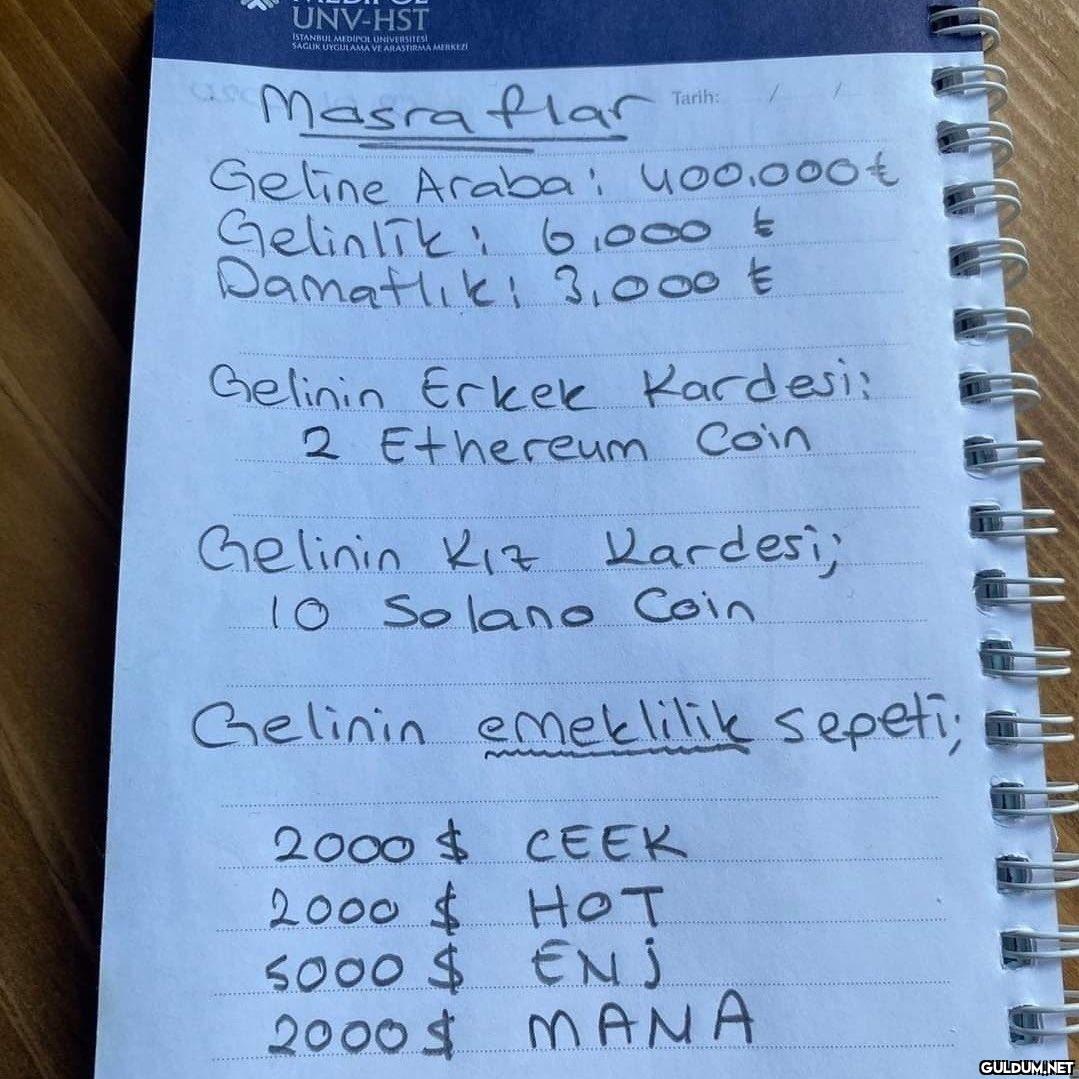 MEDİPOL
UNV-HST
İSTANBUL MEDİPOL ÜNİVERSİTESİ
SAĞLIK UYGULAMA VE ARAŞTIRMA MERKEZİ
Tarih: / /
Masraflar
Geline Araba: 400.000₺
Gelinlik: 6.000 ₺
Damatlık: 3.000 ₺
Gelinin Erkek Kardesi:
2 Ethereum Coin
Gelinin Kız Kardesi;
10 Solano Coin
Gelinin emeklilik sepeti;
2000 $ CEEK
2000 $ HOT
5000 $ ENJ
2000 $ MANA
GULDUM.NET